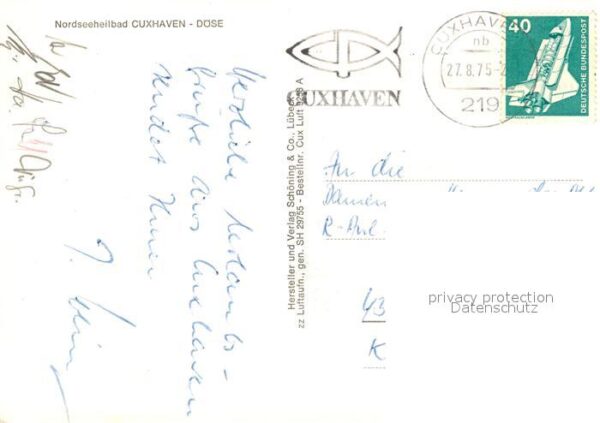 Nordseeheilbad CUXHAVEN - DÖSE
Herzliche Urlaubs-
Grüße aus Cuxhaven
sendet Ihnen
J.
Hersteller und Verlag Schöning & Co., Lübeck
zz Luftaufn., gen. SH 29755 - Bestellnr. Cux Luft 1248 A
CUXHAVEN
CUXHAVEN
nb
27.8.75-2
219
40
DEUTSCHE BUNDESPOST
An die
Damen
R-Anl.
43
K
privacy protection
Datenschutz